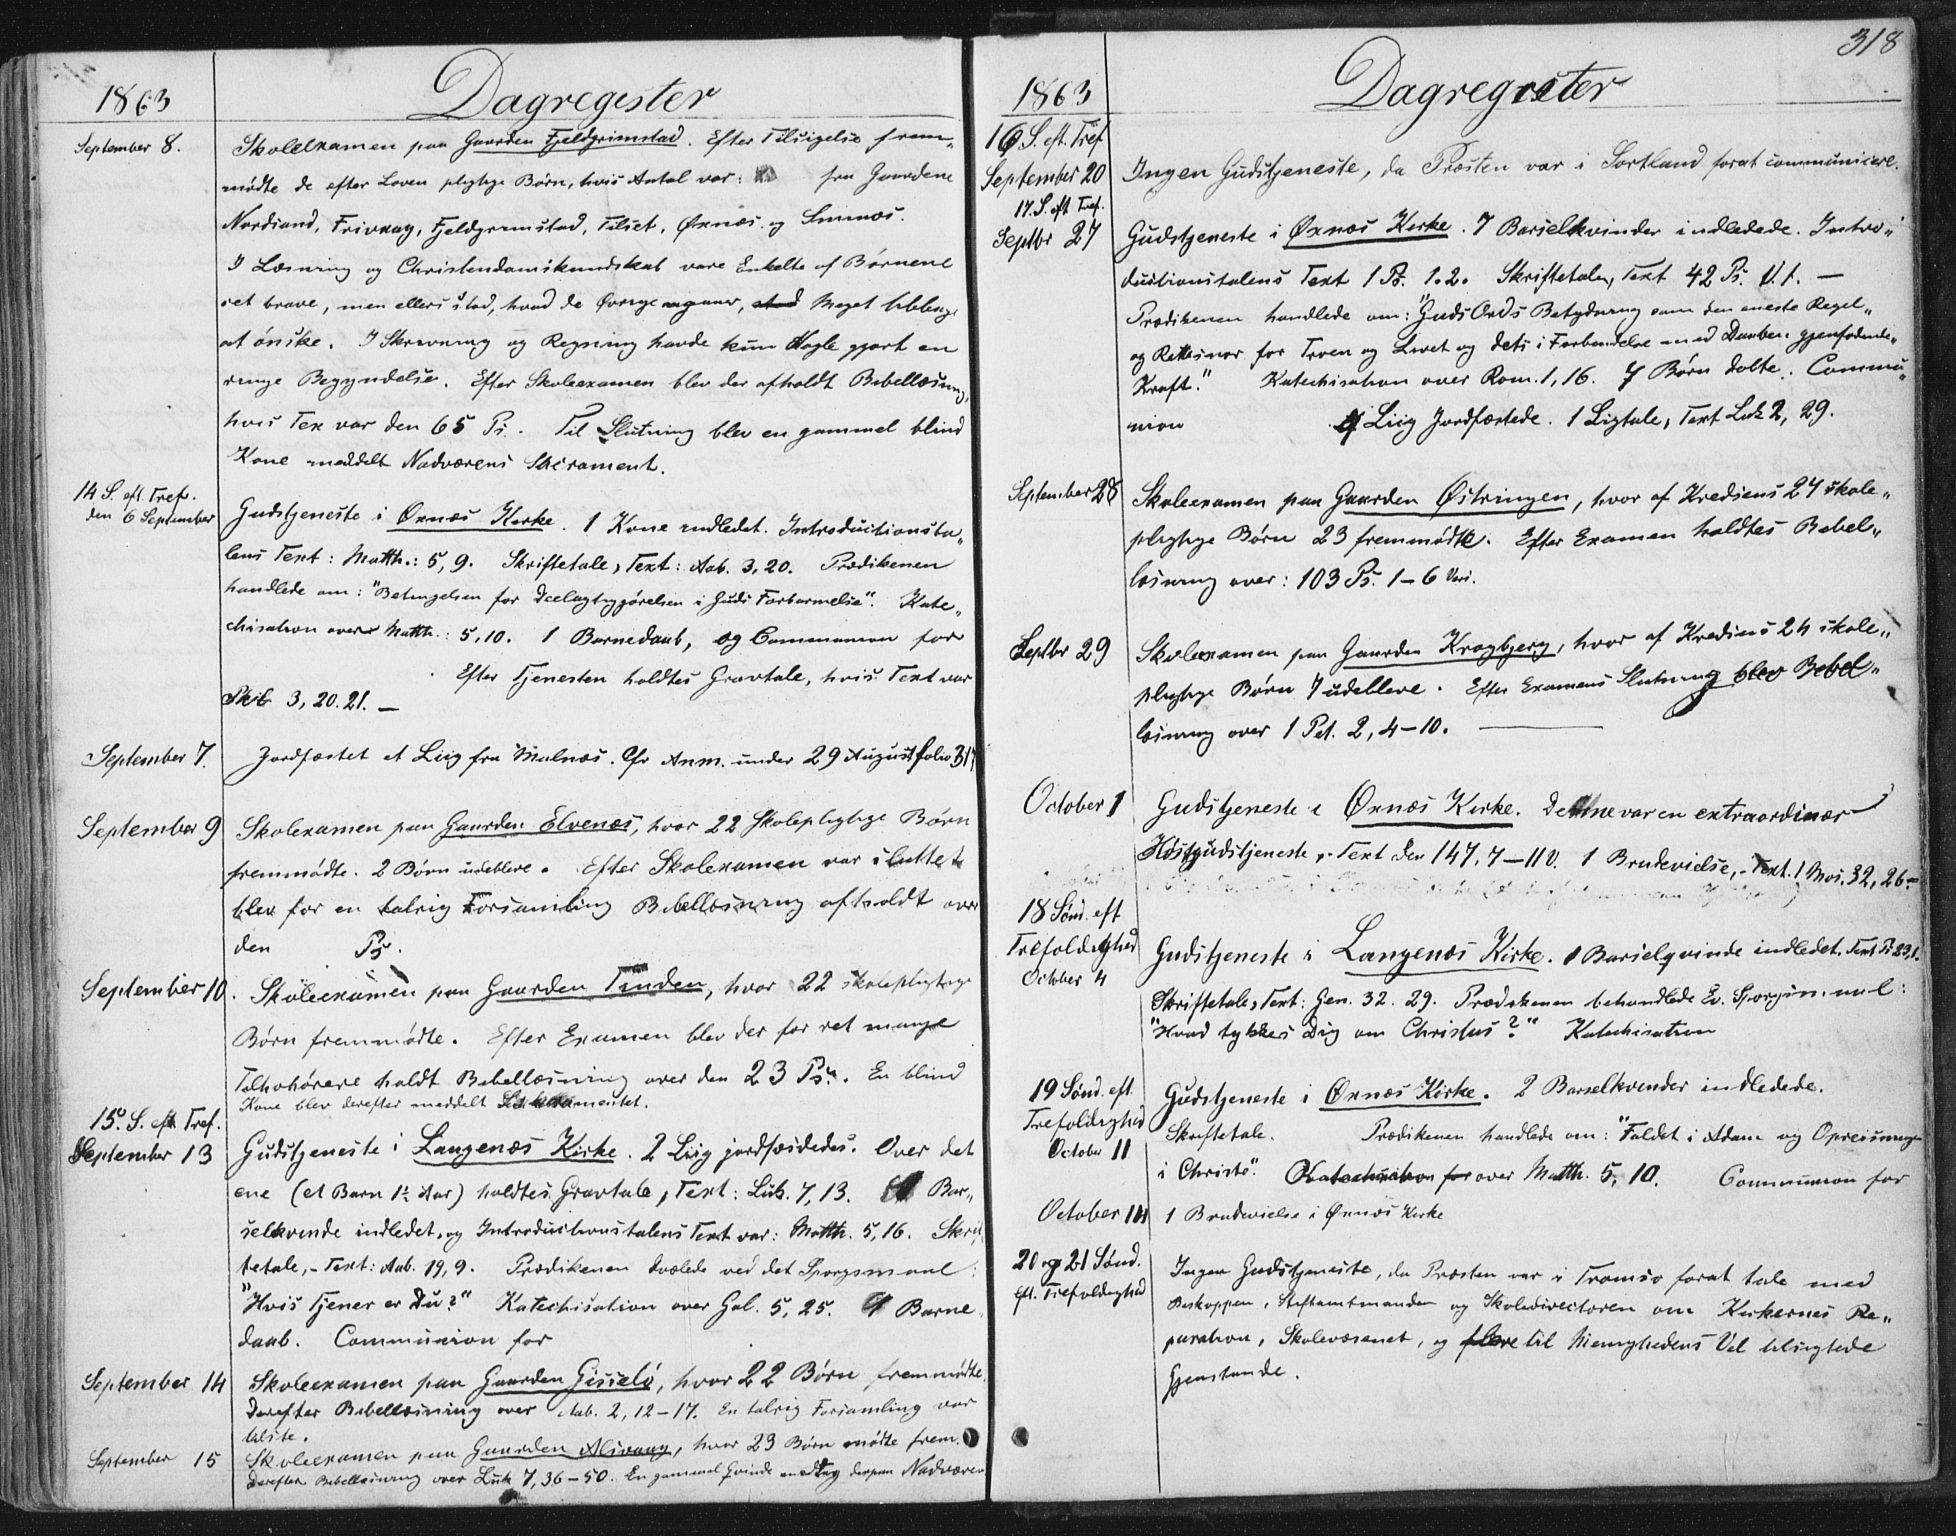 1863
Dagregister
September 8.
Skoleexamen paa Gaarden Fjeldgrimstad. Efter Tilsigelse frem„
mødte de efter Loven pligtige Børn, hvis Antal var: fra Gaardene
Nordsand, Frivaag, Fjeldgrimstad, Tilset, Øxnæs og Smines.
I Læsning og Christendomskundskab vare Enkelte af Børnene
ret brave, men ellers stod, hvad de Øvrige angaaer, Meget tilbage
at ønske. I Skrivning og Regning havde kun Nogle gjort en
ringe Begyndelse. Efter Skoleexamen blev der afholdt Bibellæsning,
hvis Tex var den 65 Ps. Til Slutning blev en gammel blind
Kone meddelt Nadverens Sacrament.
14 S. eft. Tref.
den 6 September
Gudstjeneste i Øxnæs Kirke. 1 Kone indledet. Introductionsta„
lens Text: Matth.: 5, 9. Skriftetale, Text: Aab. 3, 20. Prædikenen
handlede om: "Betingelsen for Deelagtiggjørelsen i Guds Forbarmelse". Kate„
chisation over Matth.: 5, 10. 1 Barnedaab, og Communion for
Efter Tjenesten holdtes Gravtale, hvis Text var
3, 20. 21. —
September 7.
Jordfæstet et Liig fra Malnæs. Cfr Anm. under 29 August folio 317
September 9
Skolexamen paa Gaarden Elvenæs, hvor 22 Skolepligtige Børn
fremmødte. 2 Børn udebleve. Efter Skolexamen var sluttet
blev for en talrig Forsamling Bibellæsning afholdt over
den Ps.
September 10.
Skoleexamen paa Gaarden Tinden, hvor 22 skolepligtige
Børn fremmødte. Efter Examen blev der for ret mange
Tilhørere holdt Bibellæsning over den 23 Ps. En blind
Kone blev derefter meddelt Sakramentet.
15. S. eft. Tref.
September 13
Gudstjeneste i Langenæs Kirke. 2 Liig jordfæstedes. Over det
ene (et Barn 1½ Aar) holdtes Gravtale, Text: Luk. 7, 13. 1 Bar„
selkvinde indledet, og Introductionstalens Text var: Matth. 5, 16. Skrif„
tetale, - Text: Aab. 19, 9. Prædikenen dvælede ved det Spørgsmaal:
"Hvis Tjener er Du?" Katechisation over Gal. 5, 25. 1 Barne
daab. Communion for
September 14
Skoleexamen paa Gaarden Gisselø, hvor 22 Børn fremmødte.
Derefter Bibellæsning over Aab. 2, 12–17. En talrig Forsamling var
tilste.
September 15
Skoleexamen paa Gaarden Alsvaag, hvor 23 Børn mødte frem.
Derefter Bibellæsning over Luk 7, 36–50. En gammel Qvinde modtog derpaa Nadveren
318
1863
Dagregister
16 S. eft. Tref
September 20
Ingen Gudstjeneste, da Præsten var i Sortland forat communicere.
17. S. eft Tref.
Septbr 27
Gudstjeneste i Øxnæs Kirke. 7 Barselkvinder indledede. Intro„
ductionstalens Text 1 Ps. 1.2. Skriftetalen, Text 42 Ps. V. 1. —
Prædikenen handlede om: "Guds Ords Betydning som den eneste Regel„
og Rettesnor for Troen og Livet og dets i Forbindelse med Daaben gjenfødende„
Kraft." Katechisation over Rom. 1, 16. 7 Børn døbte. Commu„
nion Liig Jordfæstede. 1 Ligtale, Text Luk 2, 29.
September 28
Skoleexamen paa Gaarden Østringen, hvor af Kredsens 27 skole„
pligtige Børn 23 fremmødte. Efter Examen holdtes Bibel„
læsning over: 103 Ps. 1–6 Vers.
Septbr 29
Skolexamen paa Gaarden Kragbjerg, hvor af Kredsens 24 skole„
pligtige Børn 7 udebleve. Efter Examens Slutning blev Bibel„
læsning over 1 Pet. 2, 4–10.
October 1
Gudstjeneste i Øxnæs Kirke. Denne var en extraordinær
Høstgudstjeneste, - Text den 147, 7–11 V. 1 Brudevielse, - Text. 1 Mos. 32, 26.
18 Sønd. eft
Trefoldighed
October 4
Gudstjeneste i Langenæs Kirke. 1 Barselqvinde indledet. Text Ps 23, 1.
Skriftetale, Text: Gen. 32. 29. Prædikenen behandlede Ev. Spørgsmaal:
"Hvad tykkes Dig om Christus?" Katechisation
19 Sønd. eft
Trefoldighed
October 11
Gudstjeneste i Øxnæs Kirke. 2 Barselkvinder indledede.
Skriftetale. Prædikenen handlede om: "Faldet i Adam og Opreisningen
i Christo". Katechisation for over Matth. 5, 10. Communion for
October 14
1 Brudevielse i Øxnæs Kirke
20 og 21 Sønd.
eft. Trefoldighed
Ingen Gudstjeneste, da Præsten var i Tromsø forat tale med
Biskoppen, Stiftamtmanden og Skoledirectoren om Kirkernes Re„
paration, Skolevæsenet, og flere til Menighedens Vel tilsigtede
Gjenstande.